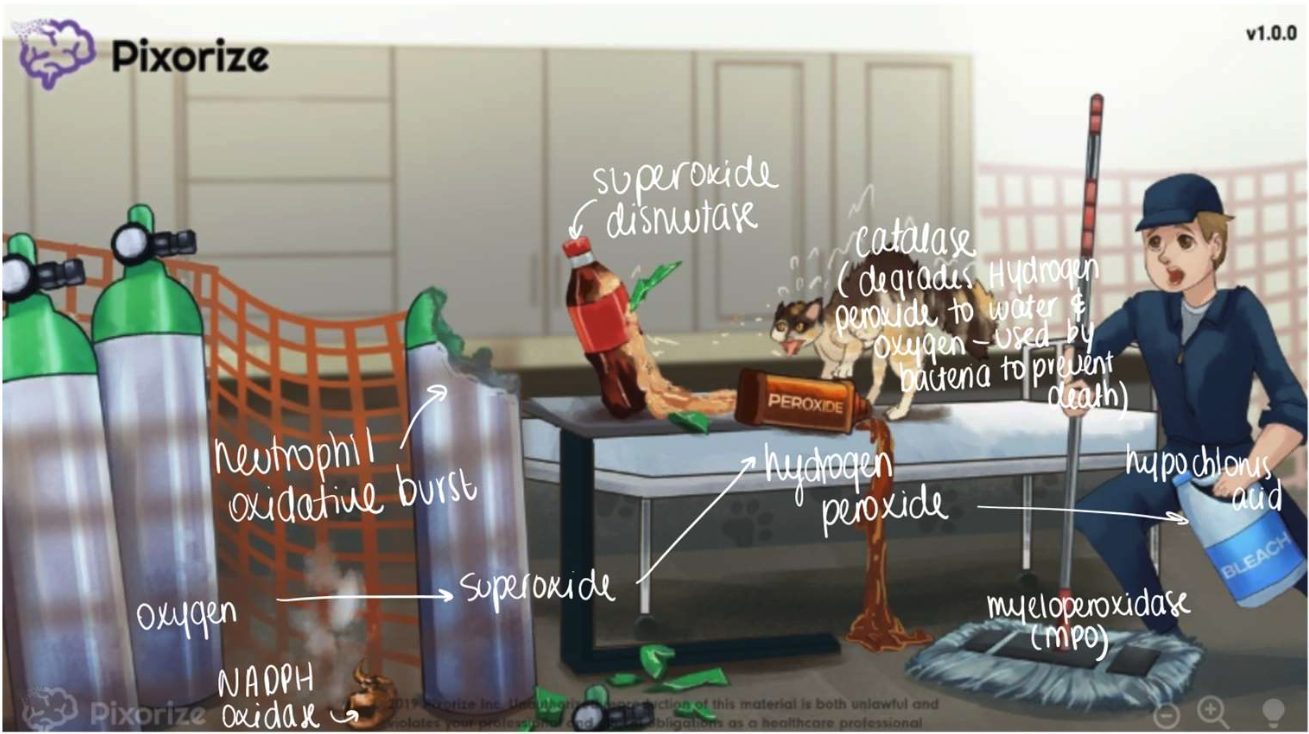 Pixorize
v1.0.0
superoxide
dismutase
catalase
(degrades Hydrogen
peroxide to water &
oxygen - used by
bacteria to prevent
death)
PEROXIDE
neutrophil
oxidative burst
hydrogen
peroxide
hypochloris
acid
BLEACH
oxygen
superoxide
myeloperoxidase
(MPO)
NADPH
oxidase
Pixorize
2019 Pixorize Inc. Unauthorized reproduction of this material is both unlawful and
violates your professional and obligations as a healthcare professional